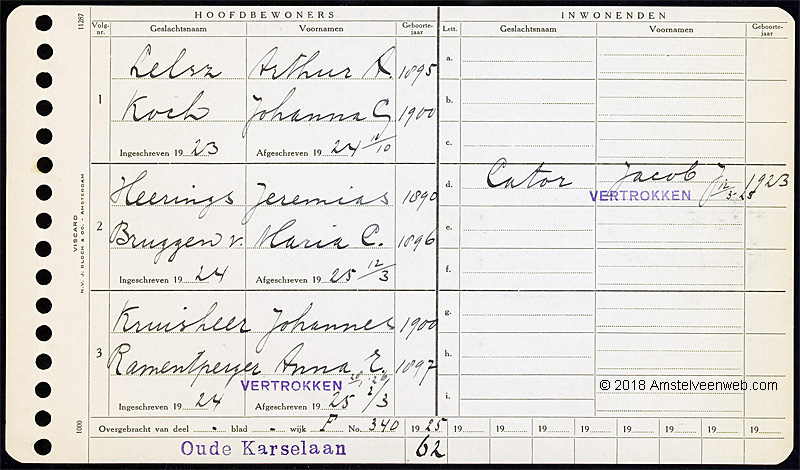 HOOFDBEWONERS INWONENDEN
Volg-nr. Geslachtsnaam Voornamen Geboorte-jaar Lett. Geslachtsnaam Voornamen Geboorte-jaar
11287
1
Lelsz Arthur A. 1895 a.
Koch Johanna C 1900 b.
c.
Ingeschreven 19 23 Afgeschreven 19 24 12/10
2
Heerings Jeremias 1890 d. Cator Jacob J 1923
VERTROKKEN 12/5-25
Bruggen v. Maria C. 1896 e.
f.
Ingeschreven 19 24 Afgeschreven 19 25 12/3
3
Kruisheer Johannes 1900 g.
Ramentperger Anna E. 1897 h.
VERTROKKEN
i.
Ingeschreven 19 24 Afgeschreven 19 25 2/3
© 2018 Amstelveenweb.com
Overgebracht van deel - blad - wijk F No. 340 19 25 19 19 19 19 19 19 19 19
Oude Karselaan 62
VISCARD
N.V. J. BLOCH & CO. - AMSTERDAM
1000